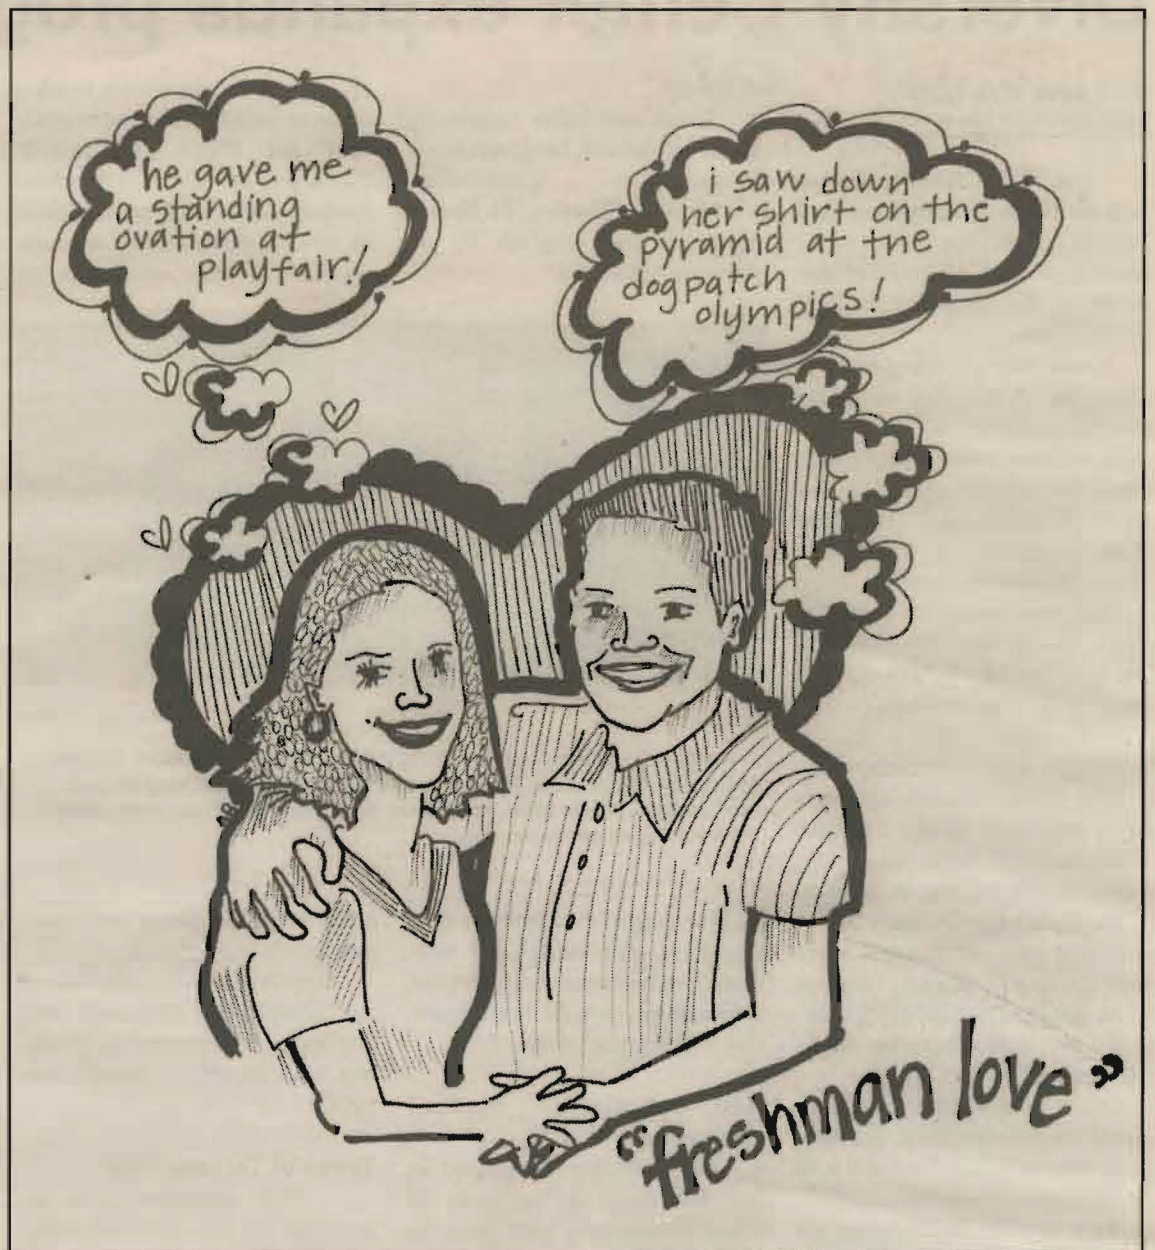 he gave me
a standing
ovation at
playfair!
i saw down
her shirt on the
pyramid at the
dogpatch
olympics!
"freshman love"